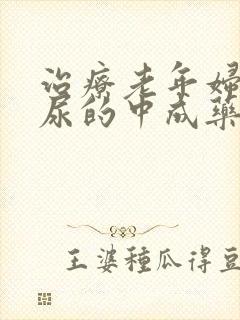 治療老年婦
尿的中成藥
王婆種瓜得豆